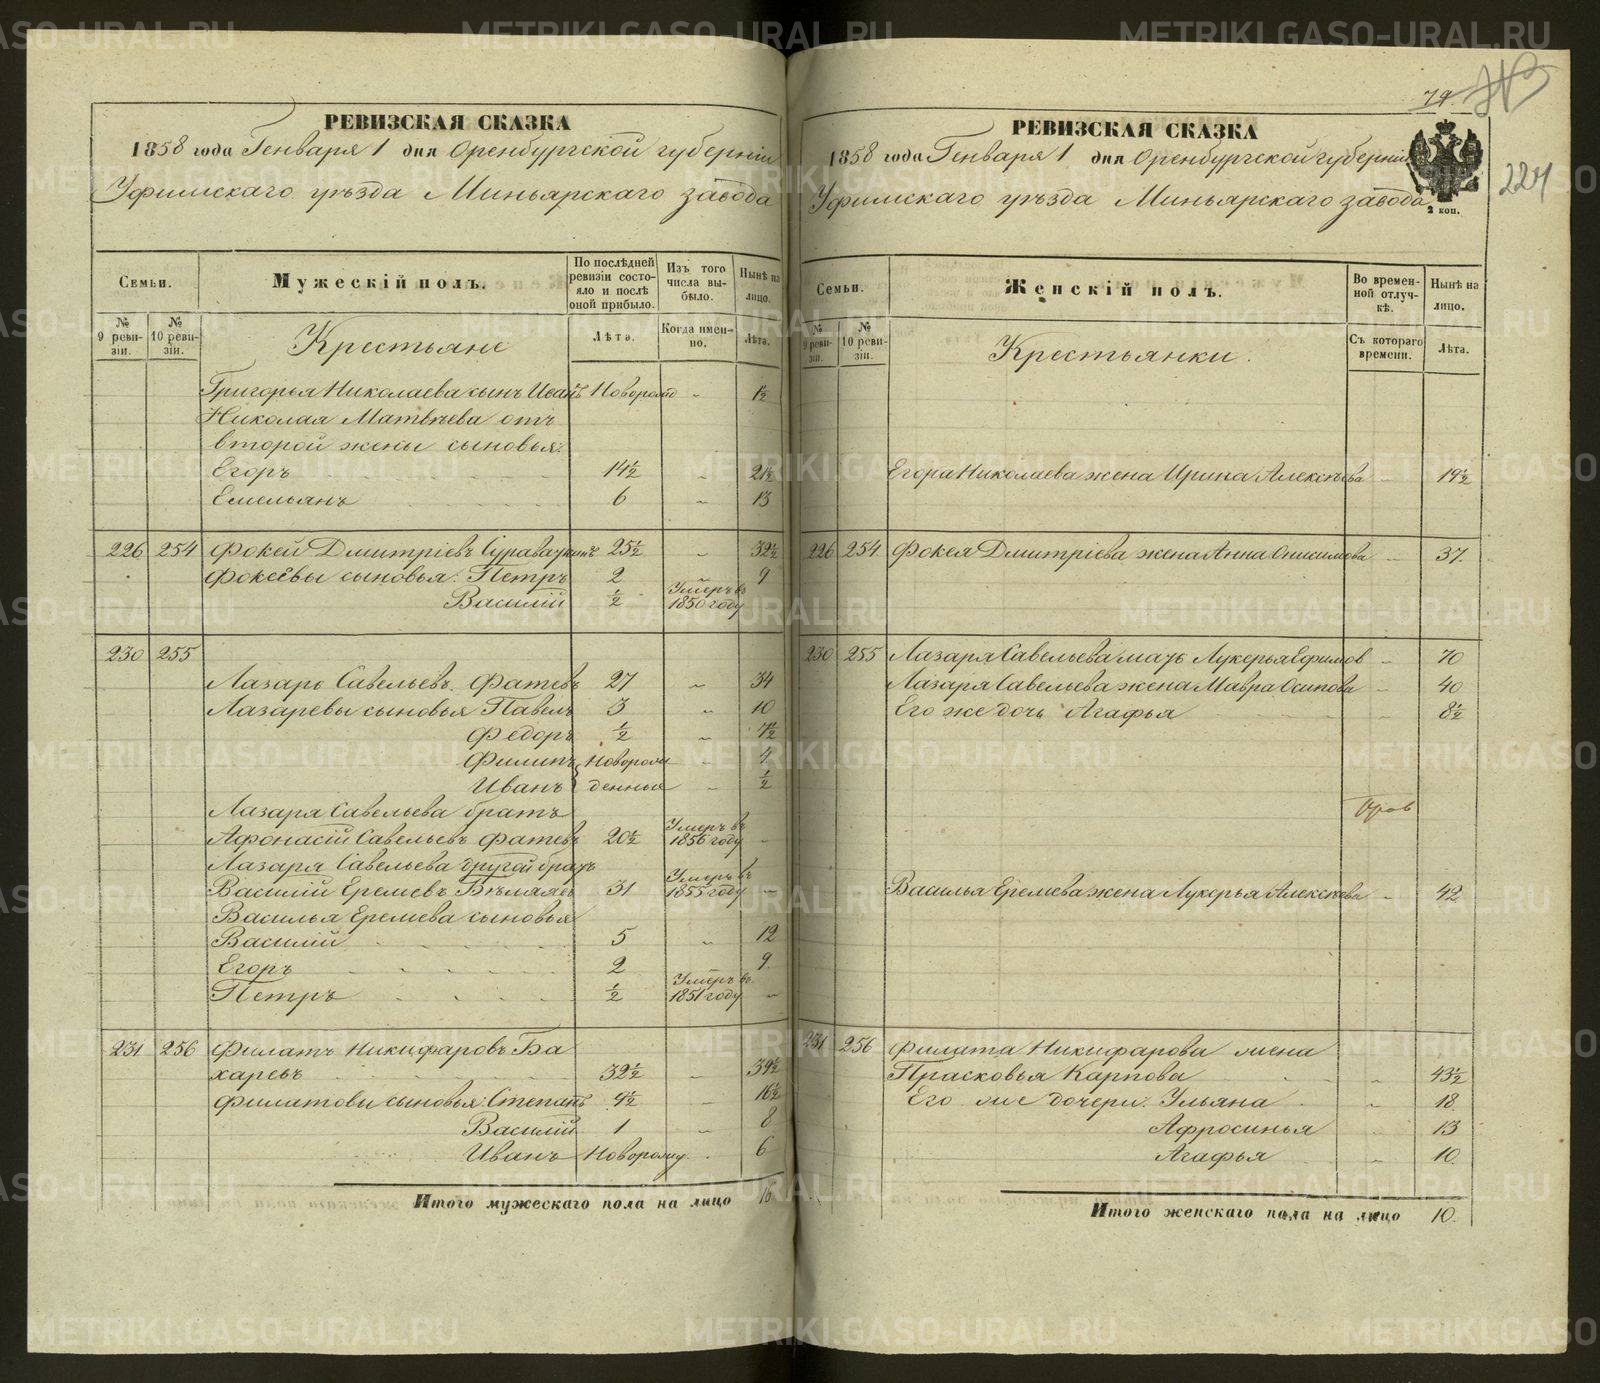 РЕВИЗСКАЯ СКАЗКА
1858 года Генваря 1 дня Оренбургской губерніи
Уфимскаго уѣзда Миньярскаго завода
Семьи.
Мужескій полъ.
По послѣдней ревизіи состояло и послѣ оной прибыло.
Изъ того числа выбыло.
Нынѣ на лицо.
№ 9 ревизіи.
№ 10 ревизіи.
Крестьяне
Лѣта.
Когда именно.
Лѣта.
Григорья Николаева сынъ Иванъ Новорожд „ 1½
Николая Матвѣева отъ
второй жены сыновья:
Егоръ 14½ „ 21½
Емельянъ 6 „ 13
226 254 Фокей Дмитріевъ 25½ „ 32½
Фокеевы сыновья: Петръ 2 „ 9
Василій ½ Умеръ въ 1850 году
230 255
Лазарь Савельевъ Фатевъ 27 „ 34
Лазаревы сыновья Павелъ 3 „ 10
Федоръ ½ „ 7½
Филипъ Новорож „ 4
Иванъ денныя „ ½
Лазаря Савельева братъ
Афонасій Савельевъ Фатевъ 20½ Умеръ въ 1856 году „
Лазаря Савельева другой братъ
Василій Еремеевъ 31 Умеръ въ 1855 году „
Василья Еремева сыновья
Василій 5 „ 12
Егоръ 2 9
Петръ ½ Умеръ въ 1851 году „
231 256 Филатъ Никифаровъ Ба
харевъ 32½ „ 39½
Филатовы сыновья: Степанъ 4½ „ 16½
Василій 1 „ 8
Иванъ Новорожд. „ 6
Итого мужескаго пола на лицо 16
79.
224
РЕВИЗСКАЯ СКАЗКА
1858 года Генваря 1 дня Оренбургской губерніи
Уфимскаго уѣзда Миньярскаго завода
2 коп.
Семьи.
Женскій полъ.
Во временной отлучкѣ.
Нынѣ на лицо.
№ 9 ревизіи.
№ 10 ревизіи.
Крестьянки.
Съ котораго времени.
Лѣта.
Егора Николаева жена Ирина Алексѣева „ 19½
226 254 Фокея Дмитріева жена Анна Онисимова „ 37.
230 255 Лазаря Савельева мать Лукерья Ефимов „ 70
Лазаря Савельева жена Мавра Осипова „ 40
Его же дочь Агафья „ 8½
Василья Еремева жена Лукерья Алексѣева „ 42
231 256 Филата Никифарова жена
Прасковья Карпова „ 43½
Его же дочери: Ульяна „ 18
Афросинья „ 13
Агафья „ 10
Итого женскаго пола на лицо 10.
METRIKI.GASO-URAL.RU